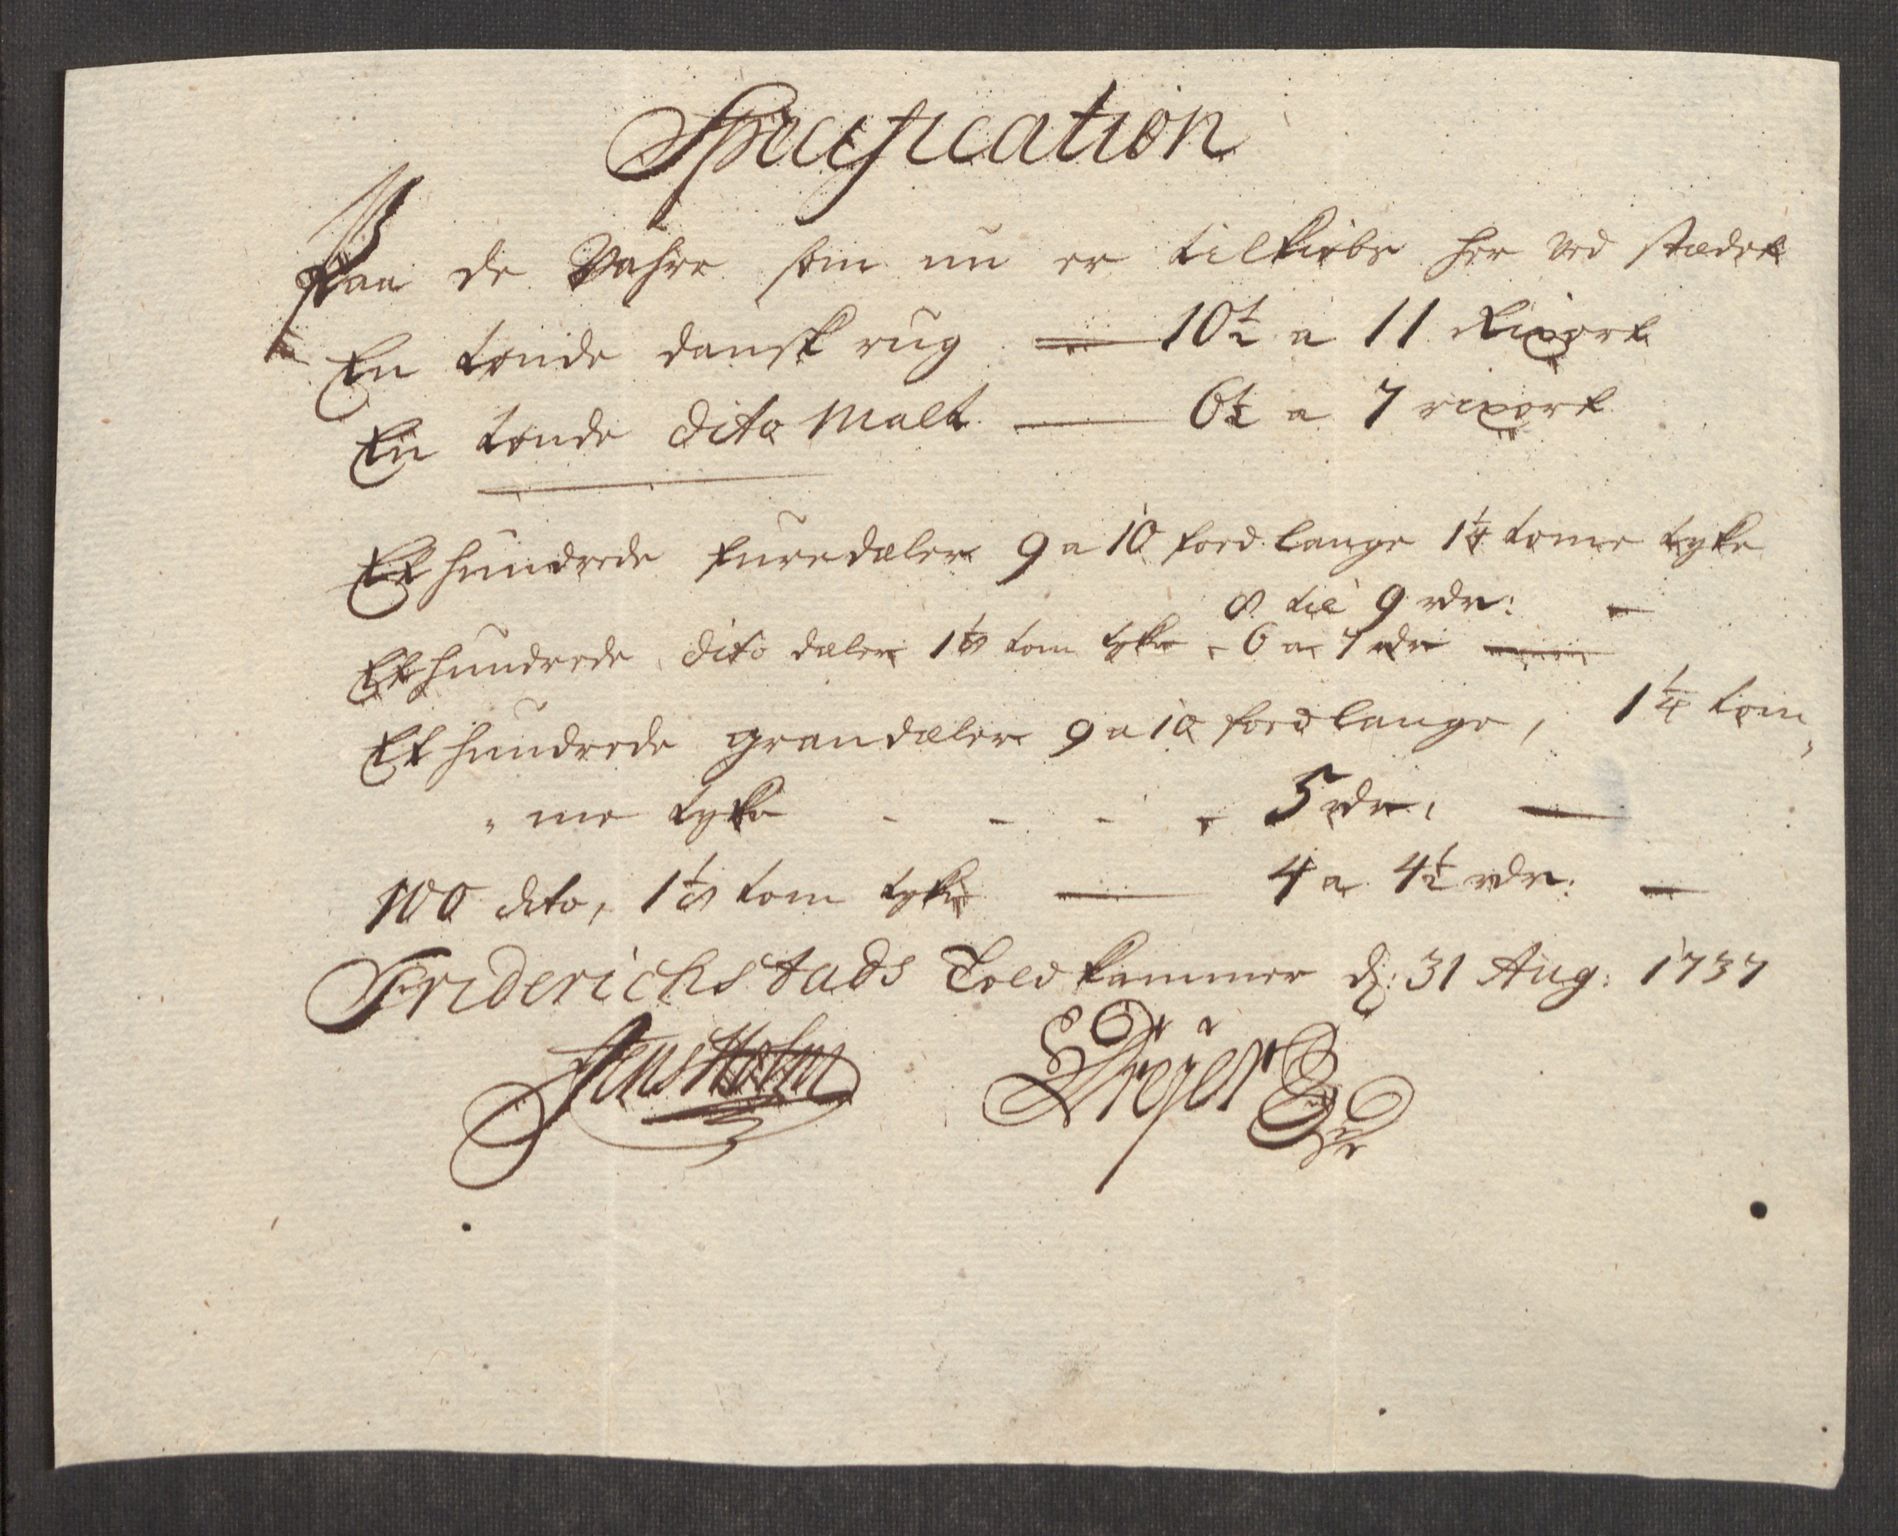 Specification
Paa de Vahre som nu er tilkiøbs her ved stædet
En tønde dansk rug 10½ a 11 Rixort
En tønde dito Malt 6½ a 7 rixort
Et hundrede furedæler 9 a 10 foed lange 1¼ tome tyke
8 til 9 rdr:
Et hundrede dito dæler 1⅛ tom tyke 6 a 7 rdr
Et hundrede grandæler 9 a 10 foed lange, 1¼ tom„
„me tyke - - - - 5 rdr,
100 dito, 1⅛ tom tyke 4 a 4½ rdr:
Friderichstads Toldkammer d: 31 Aug: 1737
Jens Holm Dreÿer